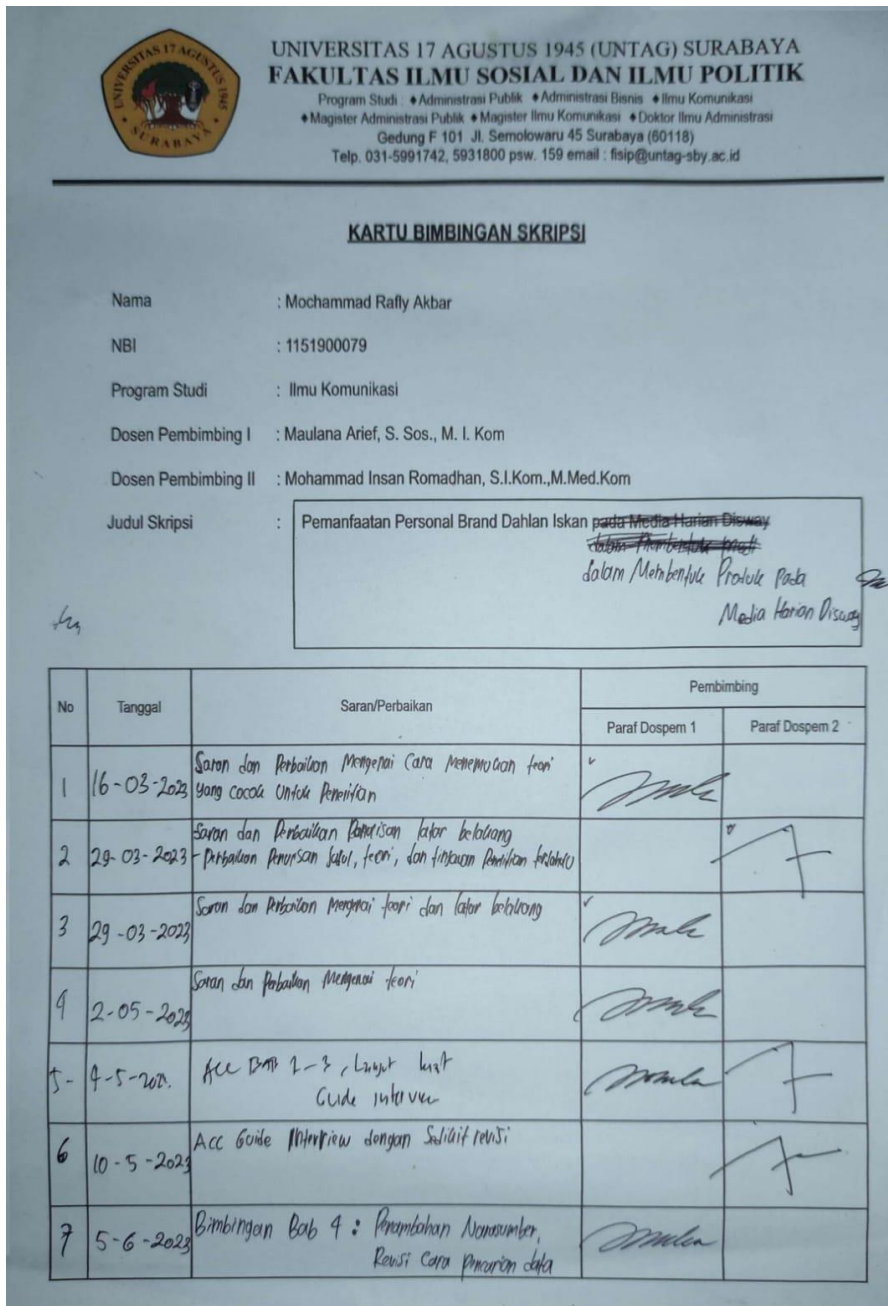 UNIVERSITAS 17 AGUSTUS 1945
SURABAYA
UNIVERSITAS 17 AGUSTUS 1945 (UNTAG) SURABAYA
FAKULTAS ILMU SOSIAL DAN ILMU POLITIK
Program Studi : ♦Administrasi Publik ♦Administrasi Bisnis ♦Ilmu Komunikasi
♦Magister Administrasi Publik ♦Magister Ilmu Komunikasi ♦Doktor Ilmu Administrasi
Gedung F 101 Jl. Semolowaru 45 Surabaya (60118)
Telp. 031-5991742, 5931800 psw. 159 email : fisip@untag-sby.ac.id
KARTU BIMBINGAN SKRIPSI
Nama : Mochammad Rafly Akbar
NBI : 1151900079
Program Studi : Ilmu Komunikasi
Dosen Pembimbing I : Maulana Arief, S. Sos., M. I. Kom
Dosen Pembimbing II : Mohammad Insan Romadhan, S.I.Kom.,M.Med.Kom
Judul Skripsi : Pemanfaatan Personal Brand Dahlan Iskan pada Media Harian Disway
dalam Membentuk
dalam Membentuk Produk Pada
Media Harian Disway
No Tanggal Saran/Perbaikan Pembimbing
Paraf Dospem 1 Paraf Dospem 2
1 16-03-2023 Saran dan Perbaikan Mengenai Cara Menemukan teori
yang cocok Untuk Penelitian
2 29-03-2023 Saran dan Perbaikan Penulisan latar belakang
- Perbaikan Penulisan Judul, teori, dan tinjauan Penelitian terdahulu
3 29-03-2023 Saran dan Perbaikan Mengenai teori dan latar belakang
4 2-05-2023 Saran dan Perbaikan Mengenai teori
5- 4-5-202 ACC BAB 1-3, Lanjut
Guide interview
6 10-5-2023 Acc Guide Interview dengan Sedikit revisi
7 5-6-2023 Bimbingan Bab 4 : Penambahan Narasumber,
Revisi Cara pencarian data